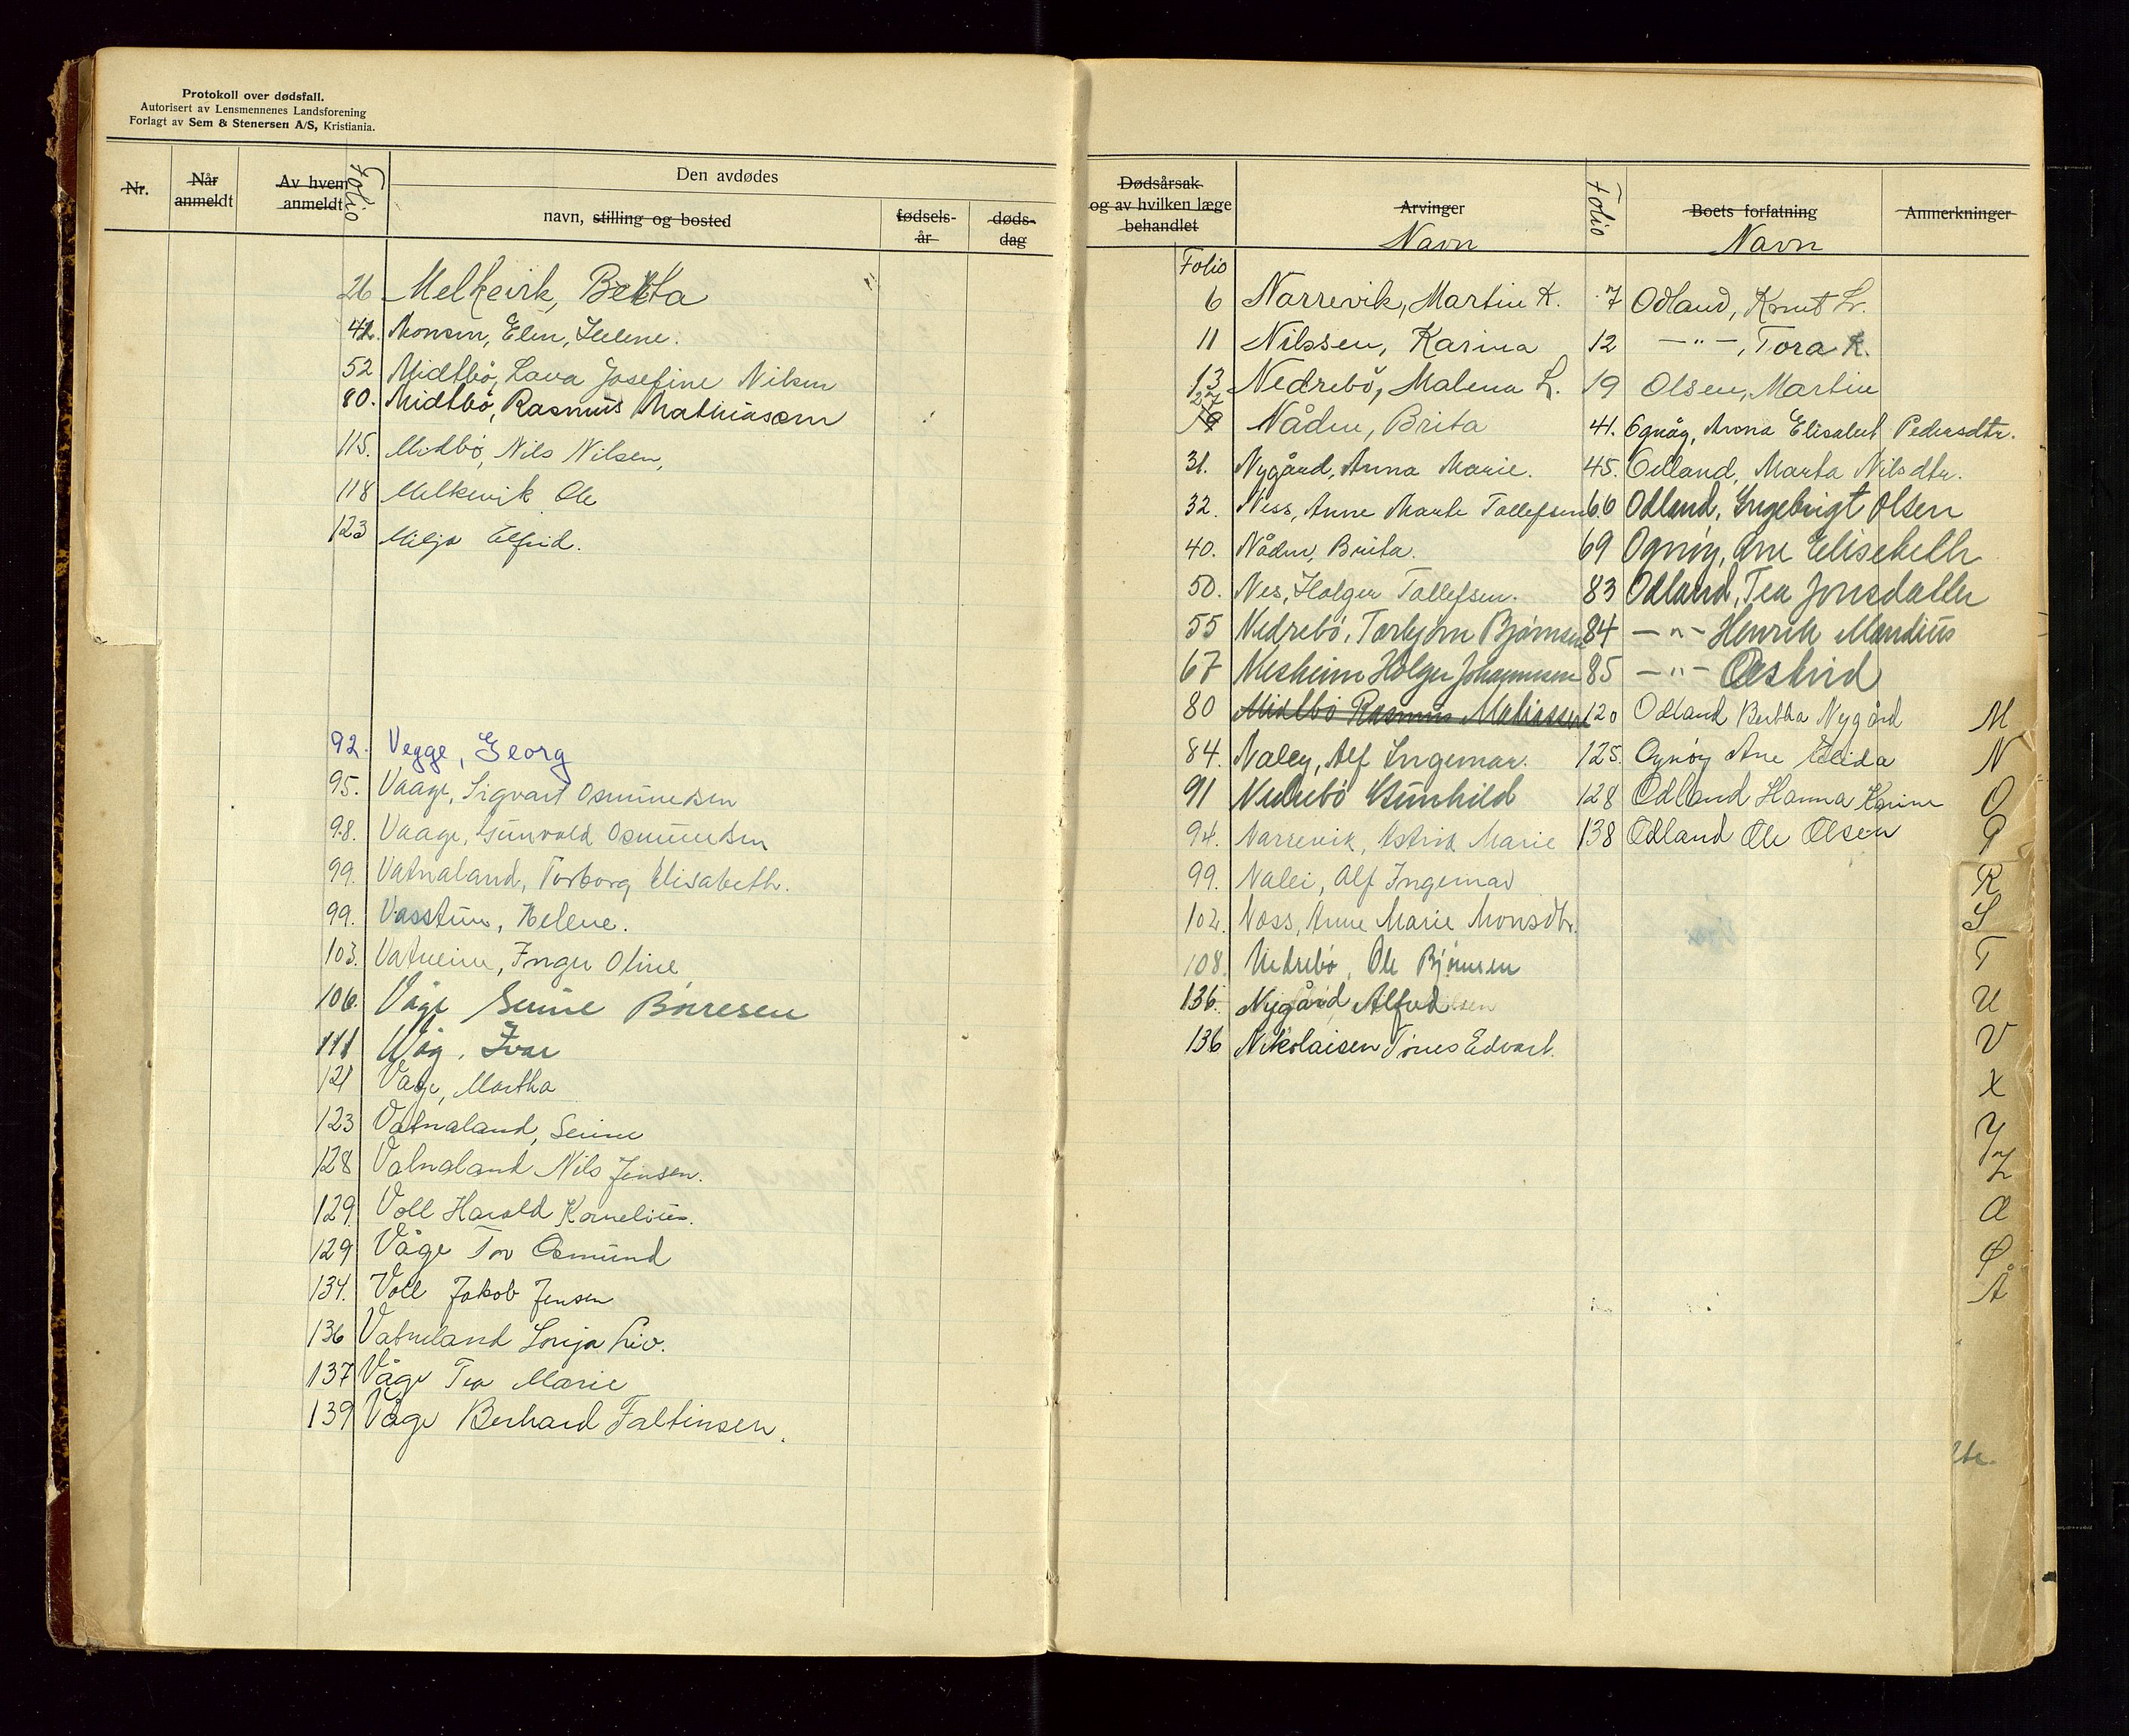 Protokoll over dødsfall.
Autorisert av Lensmennenes Landsforening
Forlagt av Sem & Stenersen A/S, Kristiania.
Nr.
Når anmeldt
Av hvem anmeldt
Folio
Den avdødes
navn, stilling og bosted
fødsels-år
døds-dag
26 Melkevik, Berta
42. Monsen, Elen, Helene.
52 Midtbö, Lava Josefine Nilsen
80. Midtbö, Rasmus Mathiassen
115. Midbö, Nils Nilsen,
118 Melkevik Ole
123 Milja Alfrid.
92. Vegge, Georg
95. Vaage, Sigvart Osmundsen
98. Vaage, Gunvald Osmundsen
99. Vatnaland, Torborg Elisabeth.
99. Vasstun, Helene.
103. Vatneim, Inger Oline
106. Våge Serine Börresen
111 Våg, Ivar
121 Våge, Martha
123 Vatnaland, Serine
128 Vatnaland Nils Jensen.
129. Voll Harald Kornelius.
129 Våge Tor Osmund
134. Voll Jakob Jensen
136 Vatneland Sonja Liv.
137 Våge Tea Marie
139 Våge Berhard Faltinsen.
Dødsårsak og av hvilken læge behandlet
Arvinger
Navn
Folio
Boets forfatning
Navn
Anmerkninger
Folio
6 Narrevik, Martin K.
11 Nilssen, Karina
13 Nedrebö, Malena L.
27 Nåden, Brita
31. Nygård, Anna Marie.
32. Ness, Anne Marte Tollefsen
40. Nåden, Brita.
50. Nes, Holger Tollefsen.
55 Nedrebö, Torbjörn Björnsen
67 Nesheim Holger Johannesen
80 Midtbö Rasmus Matiassen
84. Naley, Alf Ingemar.
91 Nedrebö Gunhild
94. Narrevik, Astrid Marie
99. Nalei, Alf Ingemar
102. Noss, Anne Marie Monsdtr.
108. Nedrebö, Ole Björnsen
136. Nygård, Alfred
136 Nikolaisen Tönes Edvart.
7 Odland, Knut L.
12 -"-, Tora K.
19 Olsen, Martin
41. Ognöy, Anna Elisabet Pedersdtr.
45. Odland, Marta Nilsdtr.
60 Odland, Ingebrigt Olsen
69 Ognöy, Ane Elisebeth
83 Odland, Tea Jonsdatter
84 -"- Henrik Mandius
85 -"- Østrid
120 Odland Bertha Nygård
125. Ognöy Ane Elida
128 Odland Hanna Karine
138 Odland Ole Olsen
M
N
O
P
R
S
T
U
V
X
Y
Z
Æ
Ø
Å